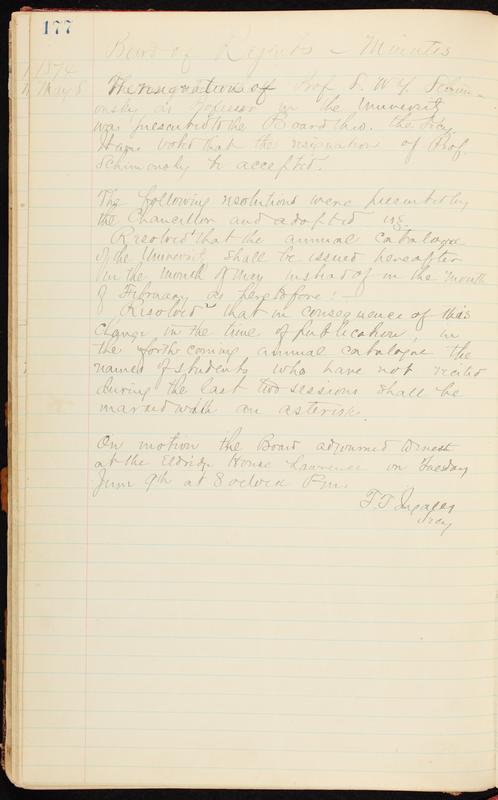 177
Board of Regents - Minutes
1874
May 8 The resignation of Prof F. W. Y. Schim-
onsky as Professor in the University
was presented to the Board this. the
was voted that the resignation of Prof.
Schimonsky be accepted.
The following resolutions were presented by
the Chancellor and adopted viz.
Resolved 1 that the annual catalogue
of the University shall be issued hereafter
in the month of May instead of in the month
of February as heretofore: -
Resolved 2 that in consequence of this
change in the time of publication, in
the forthcoming annual catalogue the
names of students who have not recited
during the last two sessions shall be
marked with an asterisk.
On motion the Board adjourned to meet
at the Eldridge House Lawrence on Tuesday
June 9th at 8 oclock P.m.
F. T. Ingalls
Secy